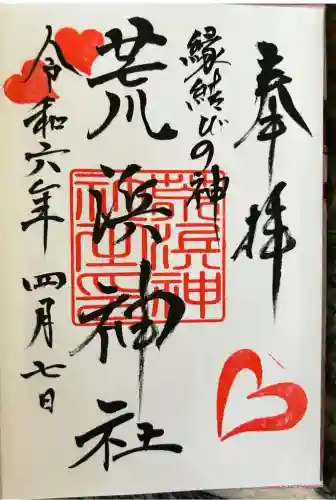 奉拝
縁結びの神
荒川浜神社
令和六年四月七日
荒浜神
社之印